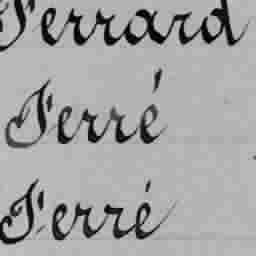 Ferrard
Ferré
Ferré